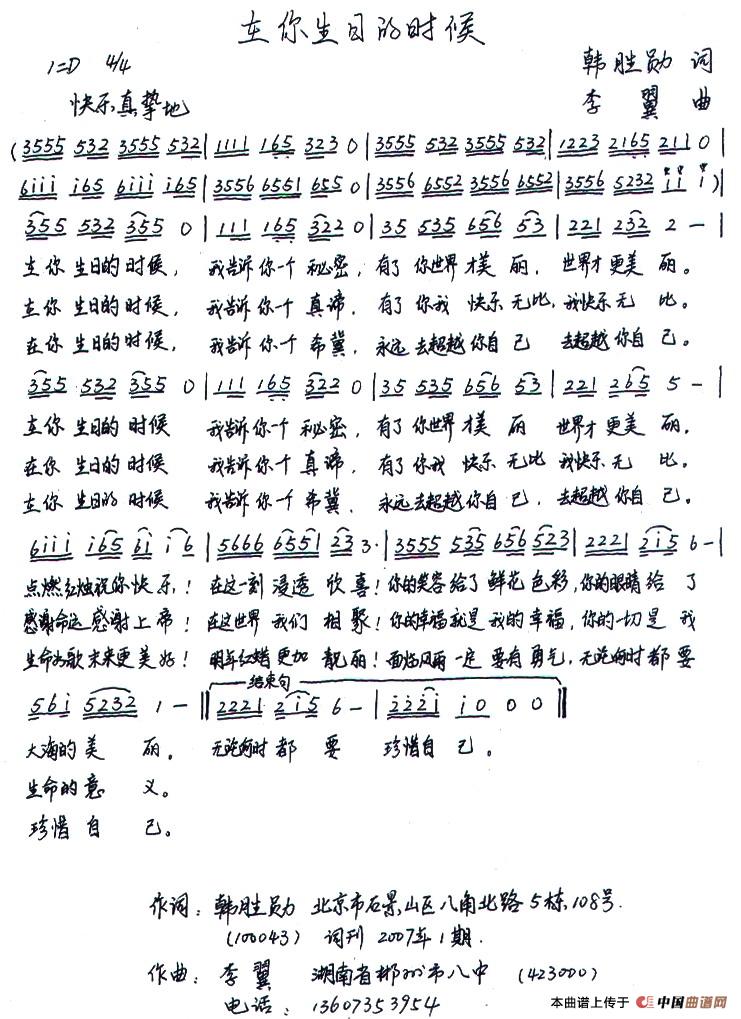 在你生日的时候
1=D 4/4
韩胜勋 词
快乐真挚地
李翼 曲
(3555 532 3555 532 | 1111 165 323 0 | 3555 532 3555 532 | 1223 2165 211 0 |
6iii i65 6iii i65 | 3556 6551 655 0 | 3556 6552 3556 6552 | 3556 5232 ii i) |
355 532 355 0 | 111 165 322 0 | 35 535 656 53 | 221 232 2 - |
在你 生日的 时候, 我告诉 你一个 秘密, 有了 你世界 才美 丽, 世界才 更美 丽。
在你 生日的 时候, 我告诉 你一个 真谛, 有了 你我 快乐 无比, 我快乐 无 比。
在你 生日的 时候, 我告诉 你一个 希冀, 永远 去超越 你自 己 去超越 你自 己。
355 532 355 0 | 111 165 322 0 | 35 535 656 53 | 221 265 5 - |
在你 生日的 时候 我告诉 你一个 秘密, 有了 你世界 才美 丽 世界才 更美 丽。
在你 生日的 时候 我告诉 你一个 真谛, 有了 你我 快乐 无比 我快乐 无 比。
在你 生日的 时候 我告诉 你一个 希冀, 永远 去超越 你自 己, 去超越 你自 己。
6iii i65 6i i 6 | 5666 6551 23 3· | 3555 535 656 523 | 2221 2i5 6 - |
点燃红烛祝你 快 乐! 在这一刻 浸透 欣喜! 你的笑容 给了 鲜花 色彩, 你的眼睛 给 了
感谢命运 感谢 上 帝! 在这世界 我们 相聚! 你的幸福 就是 我的 幸福, 你的一切 是 我
生命如歌 未来更 美 好! 明年红蜡 更加 靓丽! 面临风雨 一定 要有 勇气, 无论何时 都 要
结束句
56i 5232 1 - ‖ 2221 2i5 6 - | 222i i 0 0 0 ‖
大海的 美 丽。 无论何时 都 要 珍惜自 己。
生命的 意 义。
珍惜 自 己。
作词: 韩胜勋 北京市石景山区八角北路5栋108号.
(100043) 词刊 2007年1期.
作曲: 李翼 湖南省郴州市八中 (423000)
电话: 13607353954
本曲谱上传于 中国曲谱网